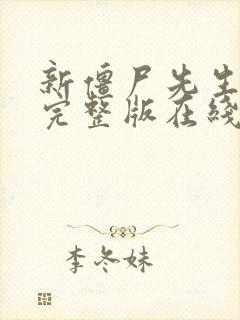 新僵尸先生
完整版在线
李冬妹